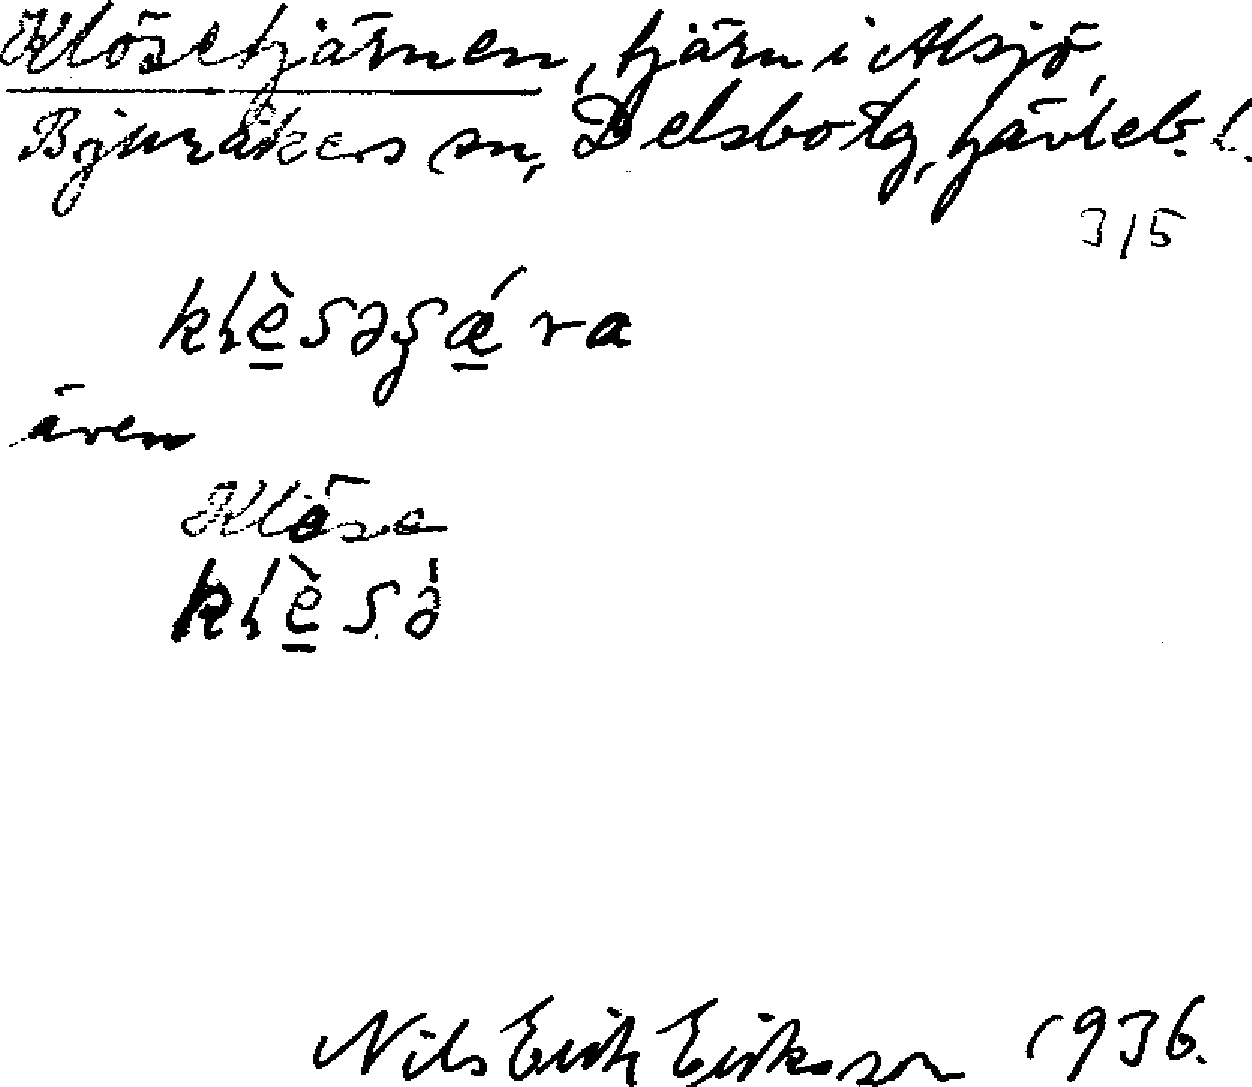 Klösetjärnen, tjärn i Alsjö,
Bjuråkers sn, Delsbo tg, Gävleb. l.
315
kḷè̱səʂǽ̱ra
även
Klöse
kḷè̱sə̀
Nils Erik Eriksson 1936.